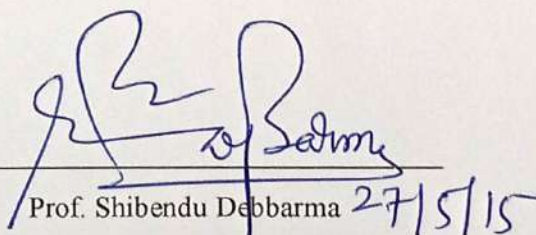 Prof. Shibendu Debbarma 27/5/15